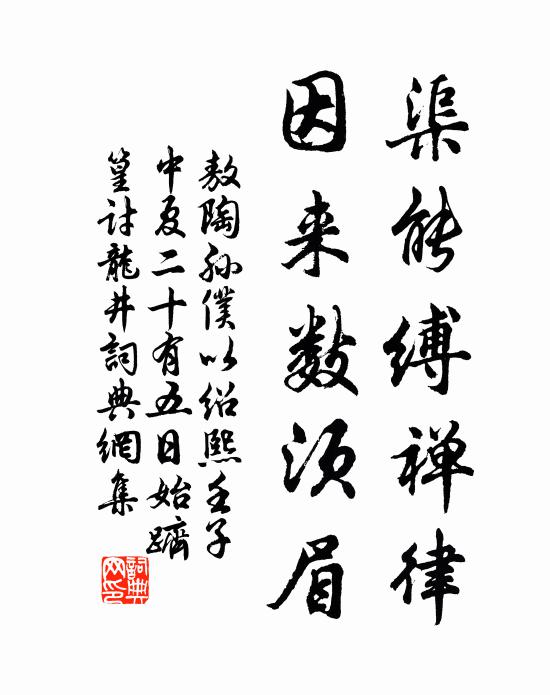 渠能缚禅律
因来数须眉
敖陶孙僕以绍熙壬子
中夏二十有五日始躋
篁討龍井詞典網集
詞典
网印